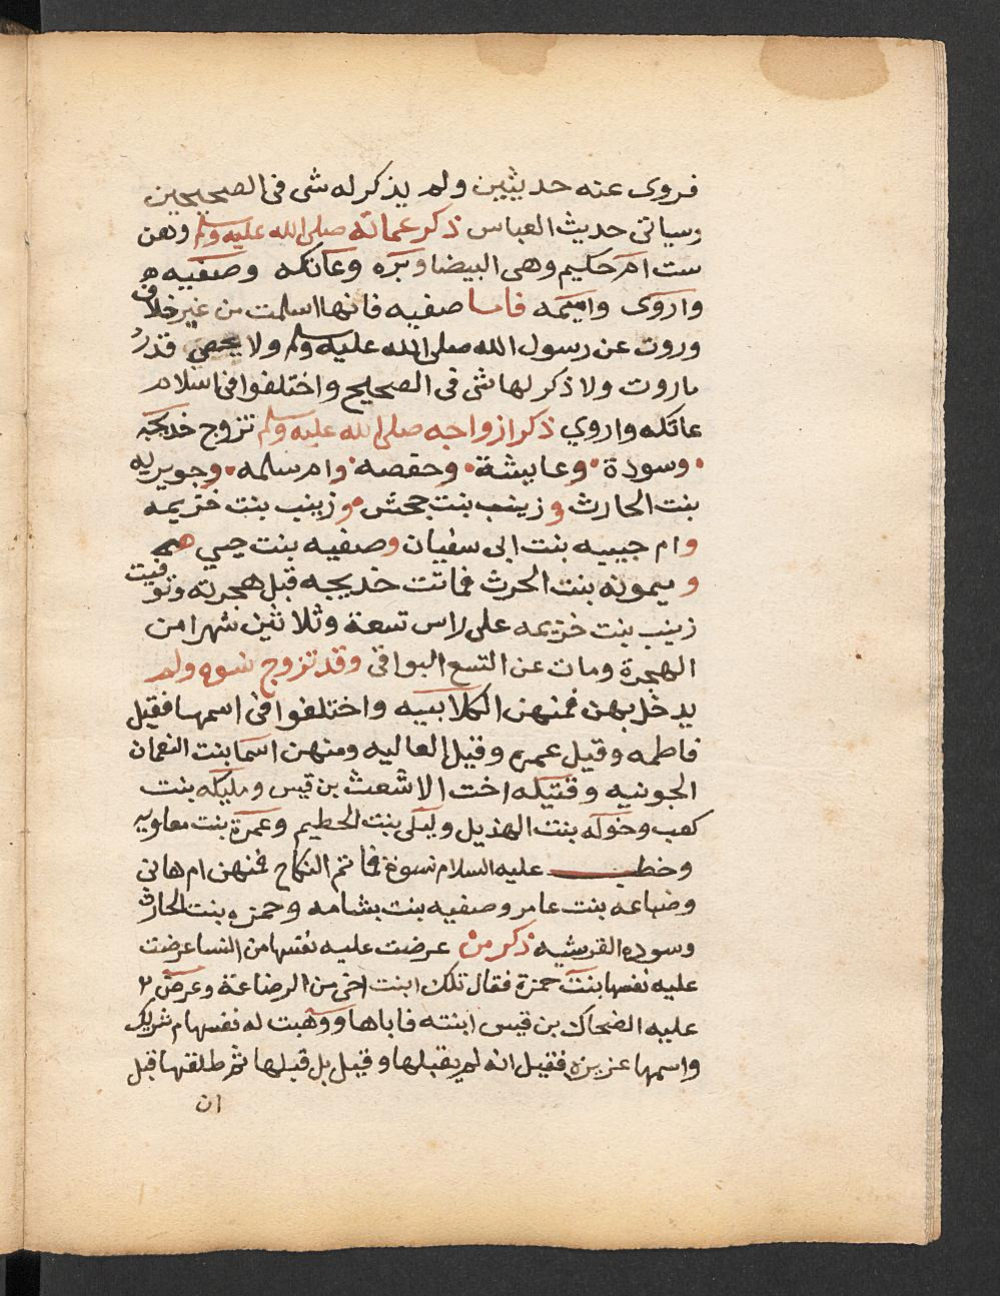 فروى عنه حديثين ولم يذكر له شى فى الصحيحين
وسياتى حديث العباس ذكر عماته صلى الله عليه وسلم وهن
ست ام حكيم وهى البيضا وبره وعاتكه وصفيه
واروى واميمه فاما صفيه فانها اسلمت من غير خلاف
وروت عن رسول الله صلى الله عليه وسلم ولا يحصى قدر
ماروت ولا ذكر لها شى فى الصحيح واختلفوا فى اسلام
عاتكه واروي ذكر ازواجه صلى الله عليه وسلم تزوج خديجه
وسودة وعايشة وحفصه وام سلمه وجويريه
بنت الحارث وزينب بنت جحش وزينب بنت خزيمه
وام حبيبه بنت ابى سفيان وصفيه بنت حيي
وميمونه بنت الحرث فماتت خديجه قبل هجرته وتوفيت
زينب بنت خزيمه على راس تسعة وثلاثين شهرا من
الهجرة ومات عن التسع البواقى وقد تزوج نسوه ولم
يدخل بهن فمنهن الكلابيه واختلفوا فى اسمها فقيل
فاطمه وقيل عمره وقيل العاليه ومنهن اسما بنت النعمان
الجونيه وقتيله اخت الاشعث بن قيس ومليكه بنت
كعب وخوله بنت الهذيل وليلى بنت الحطيم وعمرة بنت معاويه
وخطب عليه السلام نسوة فما تم النكاح فمنهن ام هانى
وضباعه بنت عامر وصفيه بنت بشامه وحمزه بنت الحارث
وسوده القرشيه ذكر من عرضت عليه نفسها من النسا عرضت
عليه نفسها بنت حمزة فقال تلك ابنت اخى من الرضاعة وعرض
عليه الضحاك بن قيس ابنته فاباها ووهبت له نفسها ام شريك
واسمها عزيزه فقيل انه لم يقبلها وقيل بل قبلها ثم طلقها قبل
ان